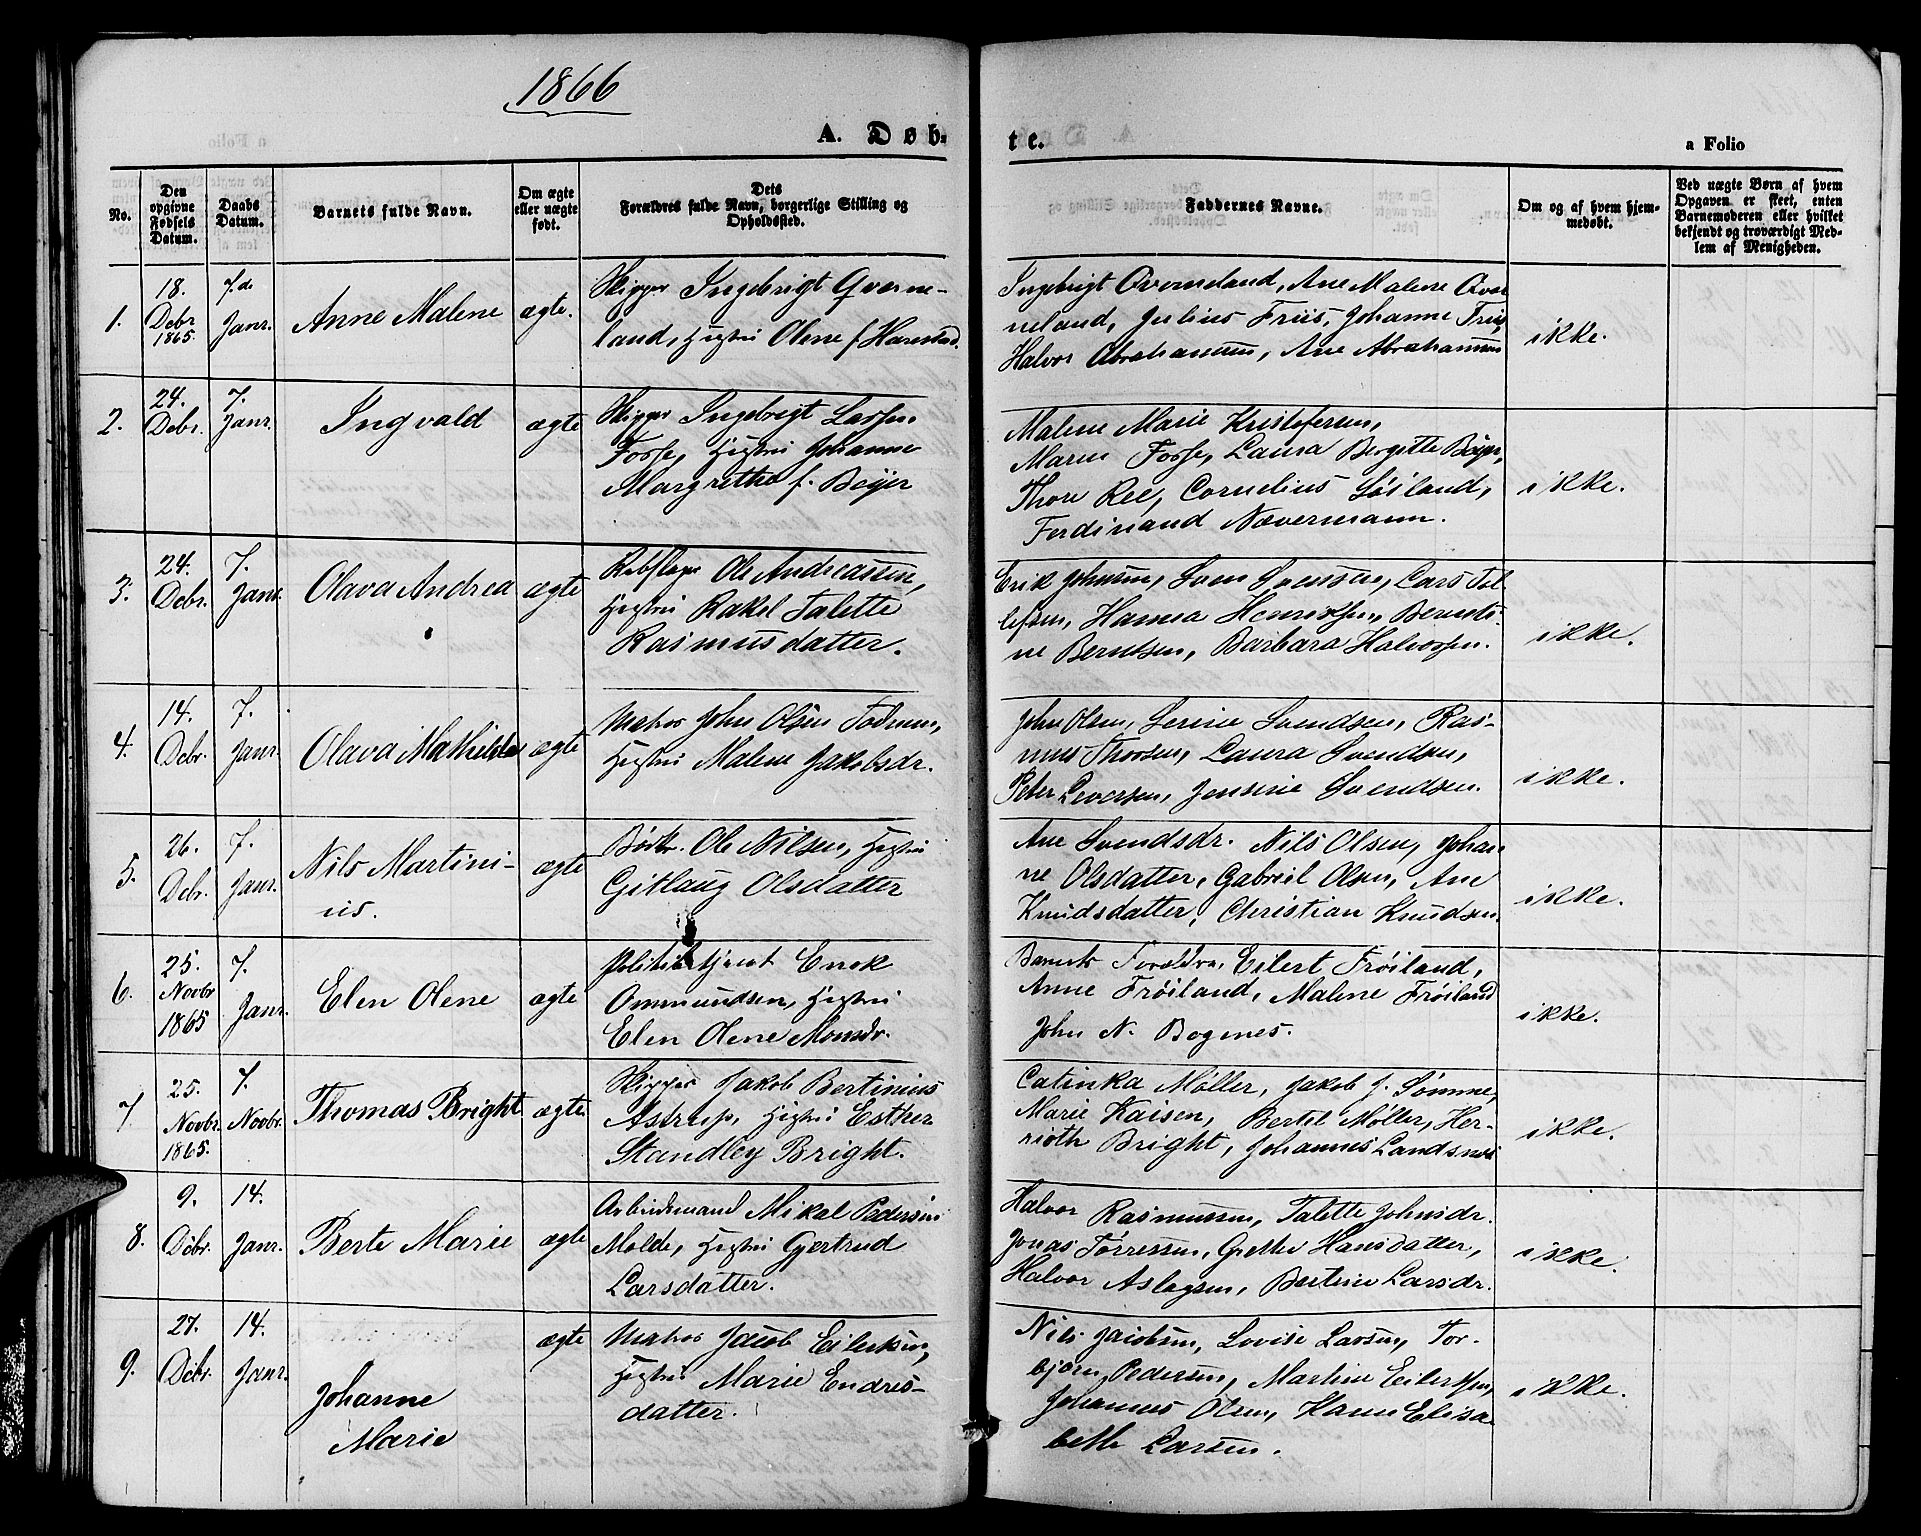 1866
A. Døb-
te.
a Folio
No.
Den opgivne Fødsels Datum.
Daabs Datum.
Barnets fulde Navn.
Om ægte eller uægte født.
Dets Forældres fulde Navn, borgerlige Stilling og Opholdssted.
Faddernes Navne.
Om og af hvem hjemmedøbt.
Ved uægte Børn af hvem Opgaven er skeet, enten Barnemoderen eller hvilket bekjendt og troværdigt Medlem af Menigheden.
1. 18. Debr 1865. 7.de Janr. Anne Malene ægte.
Skipper Ingebrigt Qverne-
land, Hustru Olene f. Harestad.
Ingebrigt Qverneland, Ane Malene Qver
neland, Julius Friis, Johanne Friis,
Halvor Abrahamsen, Ane Abrahamsen
ikke.
2. 24. Debr. 7. Janr. Ingvald ægte
Skipper Ingebrigt Larsen
Fosse, Hustru Johanne
Margrethe f. Beyer
Malene Marie Kristofersen,
Maren Fosse, Laura Bergitte Beyer,
Thore Ree, Cornelius Söiland,
Ferdinand Nævermann.
ikke.
3. 24. Debr. 7. Janr. Olava Andrea ægte
Rebslager Ole Andreassen,
Hustru Rakel Talette
Rasmusdatter.
Erik Johnsen, Sven Svensen, Lars Tol
lefsen, Hanna Henriksen, Bernti-
ne Berntsen, Barbara Halvorsen.
ikke.
4. 14. Debr. 7. Janr. Olava Mathilde ægte
Matros John Olsen Todnem,
Hustru Malene Jakobsdr.
John Olsen, Serine Svendsen, Ras-
mus Thorsen, Laura Svendsen,
Peter Seversen, Jensine Svendsen.
ikke.
5. 26. Debr. 7. Janr. Nils Martini-
us. ægte
Bødk. Ole Nilsen, Hustru
Gitlaug Olsdatter
Ane Svendsdr. Nils Olsen, Johan
ne Olsdatter, Gabriel Olsen, Ane
Knudsdatter, Christian Knudsen.
ikke.
6. 25. Novbr 1865 7. Janr. Elen Olene ægte
Politibetjent Enok
Ommundsen, Hustru
Elen Olene Monsdr.
Barnets Forældre, Eilert Fröiland,
Anne Fröiland, Malene Fröiland
John N. Bognes.
ikke.
7. 25. Novbr. 1865. 7. Novbr. Thomas Bright ægte
Skipper Jakob Bertinius
Astrup, Hustru Esther
Standley Bright.
Catinka Møller, Jakob J. Sömme,
Marie Kaisen, Bertel Møller, Her-
rioth Bright, Johannes Landsnes
ikke.
8. 9. Debr. 14. Janr. Berte Marie ægte
Arbeidsmand Mikal Pedersen
Molde, Hustru Gjertrud
Larsdatter.
Halvor Rasmussen, Talette Johnsdr.
Jonas Tørressen, Grethe Hansdatter,
Halvor Aslagsen, Bertine Larsdr.
ikke.
9. 27. Debr. 14. Janr. Johanne
Marie ægte
Matros Jacob Eilertsen,
Hustru Marie Endres-
datter.
Nils Jacobsen, Lovise Larsen, Tor-
bjørn Pedersen, Martine Eilertsen,
Johannes Olsen, Hanne Elisa
beth Larsen.
ikke.